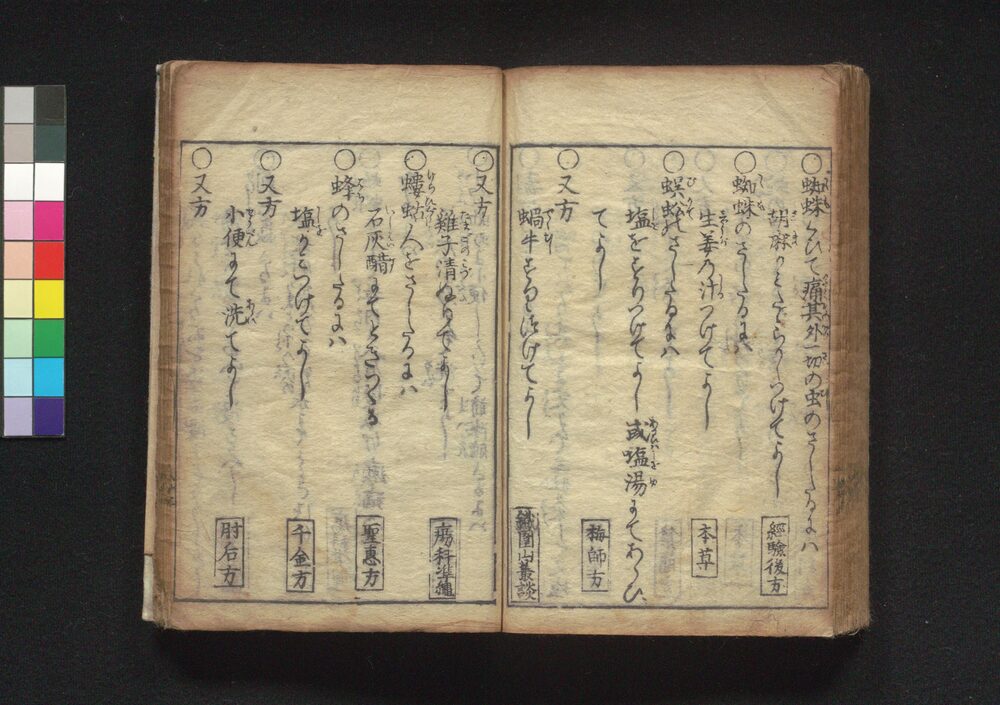 ○蜘蛛くひて痛其外一切の虫のさしたるには
胡麻のくきたゞらかしつけてよし 經驗後方
○蜘蛛のさしたるは
生姜乃汁つけてよし 本草
○蜈蚣のさしたるには
塩をすりつけてよし 或塩湯にてあらひ
てよし 梅師方
○又方
蝸牛すりつけてよし 鐵圍山叢談
○又方
雞子清ぬりてよし 瘍科準繩
○螻蛄人をさしたるには
石灰醋にてときつくる 聖惠方
○蜂のさしたるには
塩かみつけてよし 千金方
○又方
小便にて洗てよし 肘后方
○又方